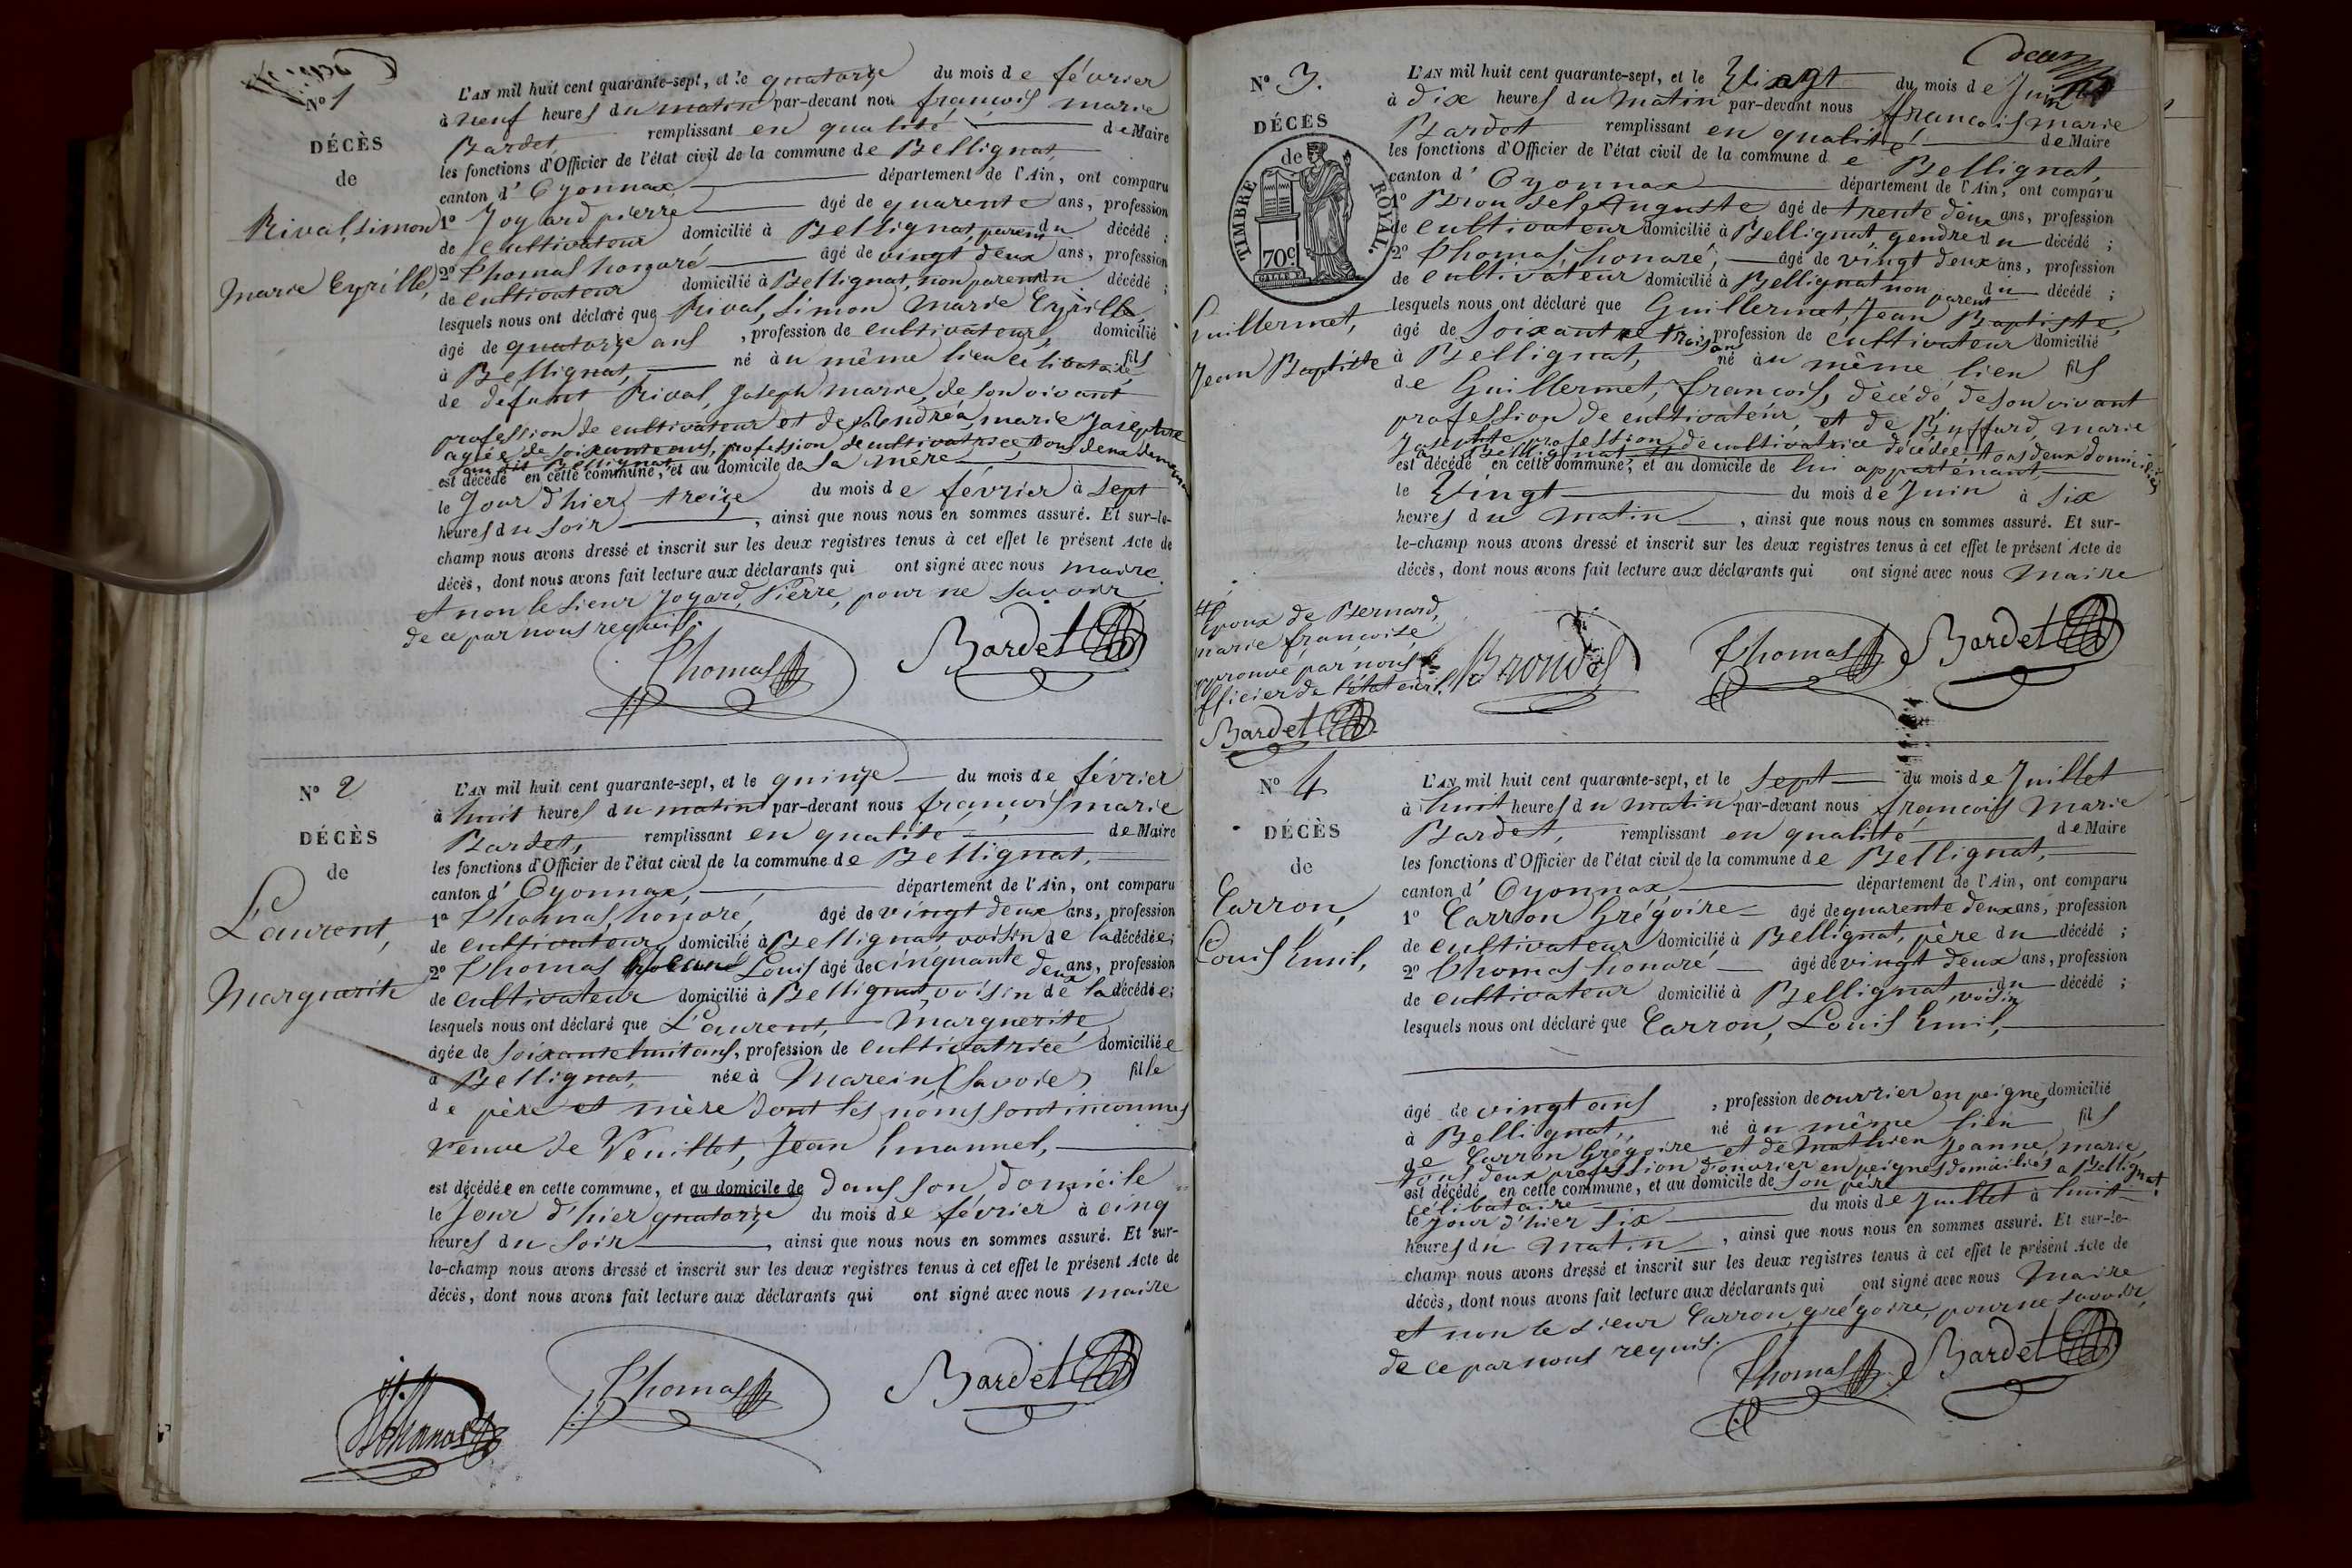 N° 1
DÉCÈS
de
Rival, Simon
Marie Cyrille,
L'AN mil huit cent quarante-sept, et le quatorze du mois de février
à neuf heures du matin par-devant nou françois marie
Bardet, remplissant en qualité de Maire
les fonctions d'Officier de l'état civil de la commune de Bellignat,
canton d'Oyonnax, département de l'Ain, ont comparu
1° Joyard pierre âgé de quarente ans, profession
de cultivateur domicilié à Bellignat, parent du décédé ;
2° Thomas honoré âgé de vingt deux ans, profession
de cultivateur domicilié à Bellignat, non parent du décédé ;
lesquels nous ont déclaré que Rival, Simon Marie Cyrille,
âgé de quatorze ans, profession de cultivateur, domicilié
à Bellignat, né au même lieu célibataire fils
de défunt Rival, Joseph marie, de son vivant
profession de cultivateur et de Andréa, marie Josephte
agée de soixante ans, profession de cultivatrice, tous deux
au dit Bellignat
est décédé en cette commune, et au domicile de sa mère
le Jour d'hier treize du mois de février à sept
heures du soir, ainsi que nous nous en sommes assuré. Et sur-le-
champ nous avons dressé et inscrit sur les deux registres tenus à cet effet le présent Acte de
décès, dont nous avons fait lecture aux déclarants qui ont signé avec nous maire.
et non le sieur Joyard, Pierre, pour ne savoir
de ce par nous requis.
Thomas Bardet
N° 2
DÉCÈS
de
Laurent,
Marguerite
L'AN mil huit cent quarante-sept, et le quinze du mois de février
à huit heures du matin par-devant nous françois marie
Bardet, remplissant en qualité de Maire
les fonctions d'Officier de l'état civil de la commune de Bellignat,
canton d'Oyonnax, département de l'Ain, ont comparu
1° Thomas, honoré, âgé de vingt deux ans, profession
de cultivateur, domicilié à Bellignat, voisin de la décédée ;
2° Thomas Louis âgé de cinquante deux ans, profession
de cultivateur domicilié à Bellignat, voisin de la décédée ;
lesquels nous ont déclaré que Laurent, Marguerite
âgée de soixante huit ans, profession de cultivatrice domiciliée
à Bellignat, née à Marein (Savoie) fille
de père et mère dont les noms sont inconnus
veuve de Veuillet, Jean Emannel,
est décédée en cette commune, et au domicile de dans son domicile
le Jour d'hier quatorze du mois de février à cinq
heures du soir, ainsi que nous nous en sommes assuré. Et sur-
le-champ nous avons dressé et inscrit sur les deux registres tenus à cet effet le présent Acte de
décès, dont nous avons fait lecture aux déclarants qui ont signé avec nous maire
Thomas Thomas Bardet
deux
N° 3.
DÉCÈS
de
TIMBRE ROYAL.
70c
Guillermet,
Jean Baptiste
L'AN mil huit cent quarante-sept, et le Vingt du mois de Juin
à dix heures du matin par-devant nous francois marie
Bardet remplissant en qualité de Maire
les fonctions d'Officier de l'état civil de la commune de Bellignat,
canton d'Oyonnax département de l'Ain, ont comparu
1° Brondel, Auguste âgé de trente deux ans, profession
de cultivateur domicilié à Bellignat, gendre du décédé ;
2° Thomas, honoré, âgé de vingt deux ans, profession
de cultivateur domicilié à Bellignat non parent du décédé ;
lesquels nous ont déclaré que Guillermet, Jean Baptiste,
âgé de soixante trois ans profession de cultivateur domicilié
à Bellignat, né au même lieu fils
de Guillermet, françois, décédé, de son vivant
profession de cultivateur, et de Buffard marie
Josephte profession de cultivatrice décédée tous deux domiciliés
à Bellignat #
est décédé en cette commune, et au domicile de lui appartenant
le Vingt du mois de Juin à six
heures du matin, ainsi que nous nous en sommes assuré. Et sur-
le-champ nous avons dressé et inscrit sur les deux registres tenus à cet effet le présent Acte de
décès, dont nous avons fait lecture aux déclarants qui ont signé avec nous Maire
# Epoux de Bernard,
marie françoise
pprouvé par nous
fficier de l'état civil.
Bardet
Brondel Thomas Bardet
N° 4
DÉCÈS
de
Carron,
Louis Emil,
L'AN mil huit cent quarante-sept, et le sept du mois de Juillet
à huit heures du matin par-devant nous francois Marie
Bardet, remplissant en qualité de Maire
les fonctions d'Officier de l'état civil de la commune de Bellignat,
canton d'Oyonnax département de l'Ain, ont comparu
1° Carron Grégoire âgé de quarente deux ans, profession
de cultivateur domicilié à Bellignat, père du décédé ;
2° Thomas honoré âgé de vingt deux ans, profession
de cultivateur domicilié à Bellignat voisin du décédé ;
lesquels nous ont déclaré que Carron, Louis Emil,
âgé de vingt ans, profession de ouvrier en peignes domicilié
à Bellignat, né au même lieu fils
de Carron Grégoire et de Mathieu Jeanne, marie,
tous deux profession d'ouvrier en peignes domiciliés à Bellignat,
est décédé en cette commune, et au domicile de son père
célibataire
le Jour d'hier six du mois de Juillet à huit
heures du matin, ainsi que nous nous en sommes assuré. Et sur-le-
champ nous avons dressé et inscrit sur les deux registres tenus à cet effet le présent Acte de
décès, dont nous avons fait lecture aux déclarants qui ont signé avec nous Maire
et non le sieur Carron, grégoire, pour ne savoir,
de ce par nous requis.
Thomas Bardet